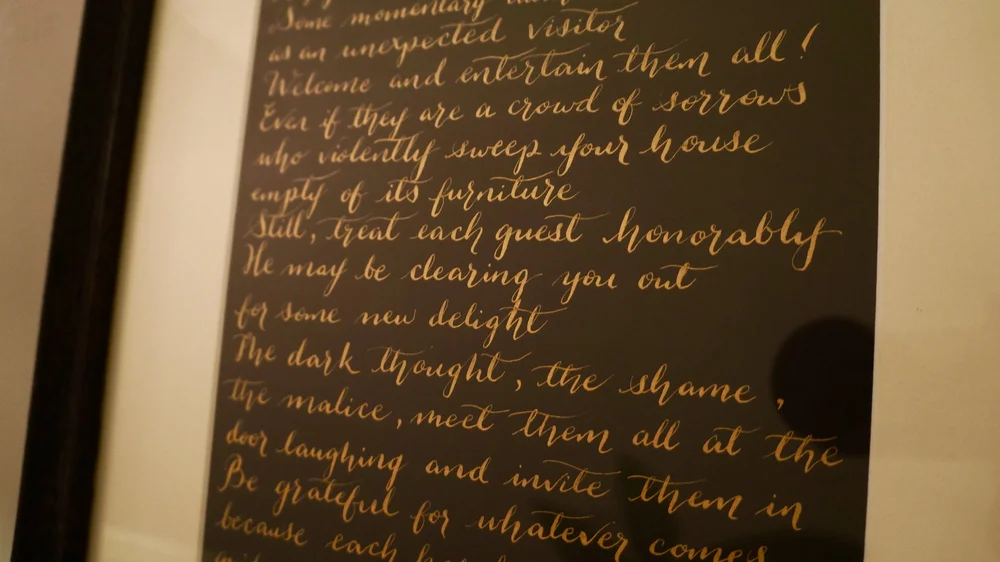 Some momentary
as an unexpected visitor
Welcome and entertain them all!
Even if they are a crowd of sorrows
who violently sweep your house
empty of its furniture
Still, treat each guest honorably
He may be clearing you out
for some new delight
The dark thought, the shame,
the malice, meet them all at the
door laughing and invite them in
Be grateful for whatever comes
because each